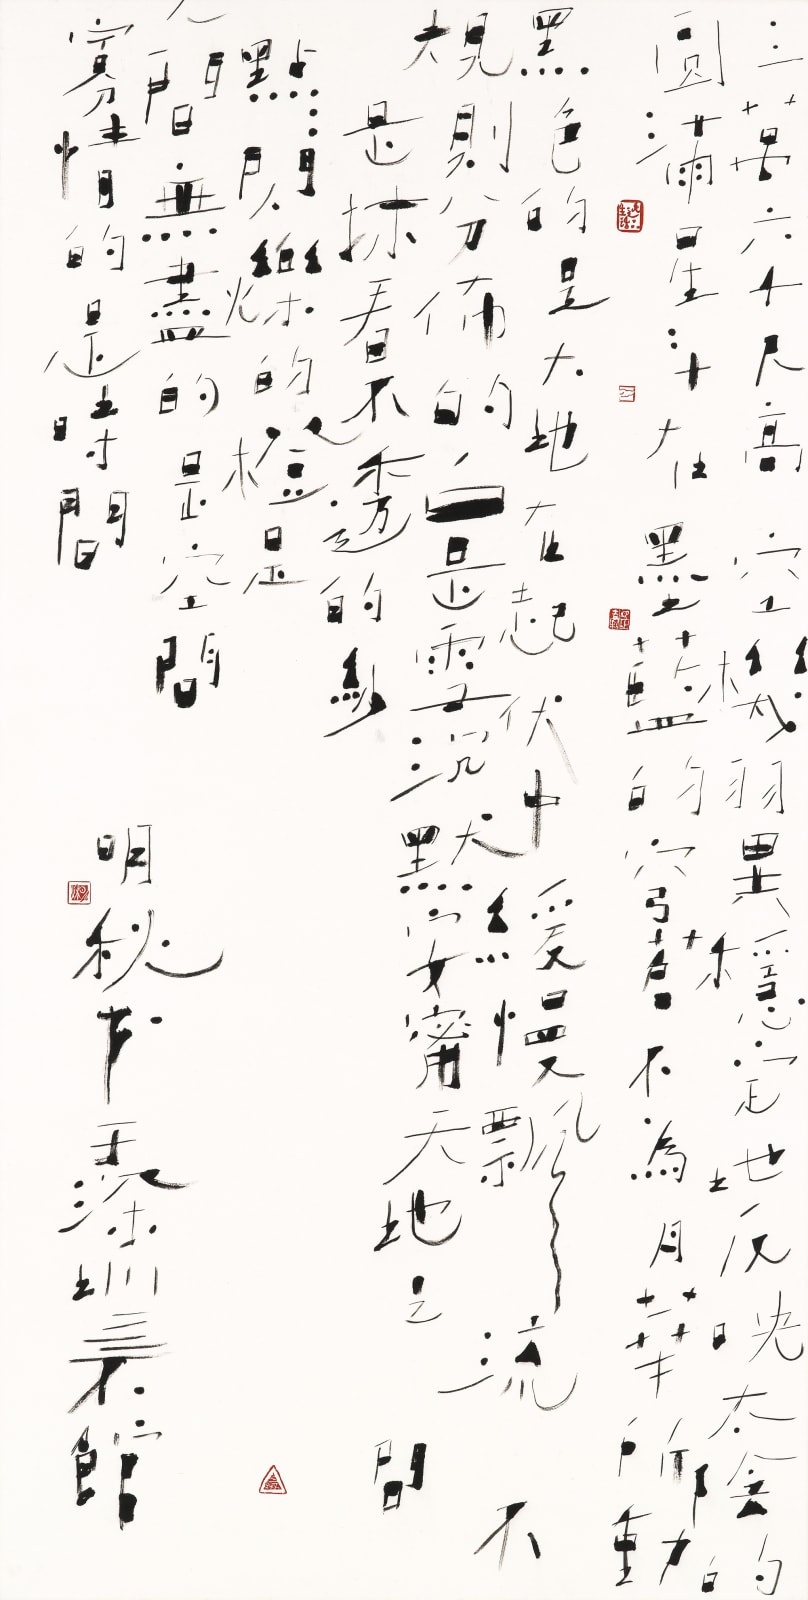 三萬六千尺高空機翼穩定地反映太陰的
圓滿星斗在墨藍的穹蒼不為月華所動
黑色的是大地在起伏中緩慢飄流不
規則分佈的白是雲沉默安甯天地之間
是抹看不透的紗
點點閃爍的橙是
人間無盡的是空間
寡情的是時間
明秋书于深圳三不館